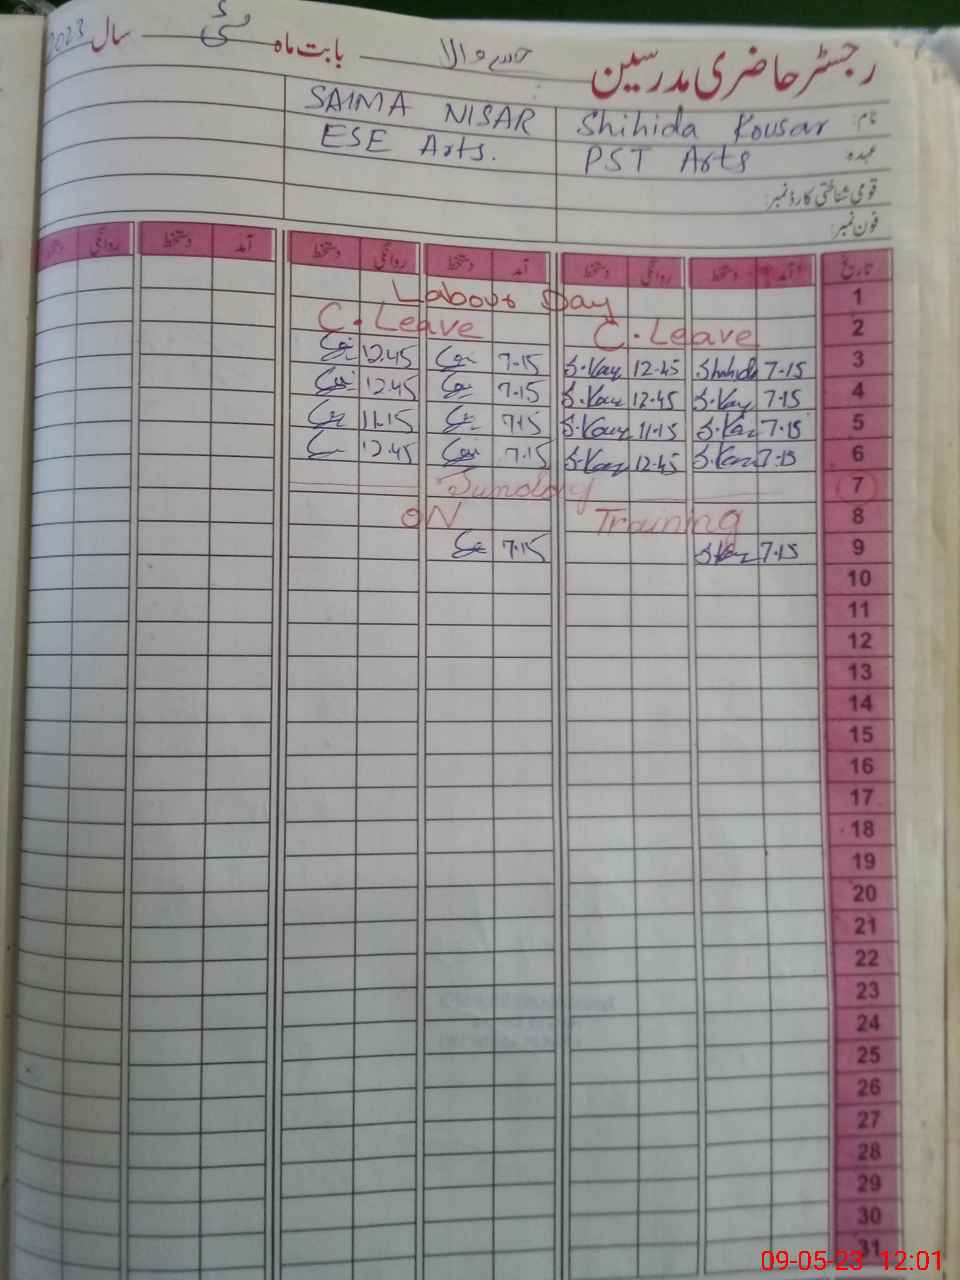 رجسٹر حاضری مدرسین بابت ماہ مئی سال 2023
نام: Shihida Kousar SAIMA NISAR
عہدہ PST Arts ESE Arts.
قومی شناختی کارڈ نمبر:
فون نمبر:
تاریخ آمد دستخط روانگی دستخط آمد دستخط روانگی دستخط آمد دستخط روانگی دستخط
1 Labour Day
2 C. Leave C. Leave
3 7-15 Shahida 12-45 S.Kau 7-15 12.45
4 7-15 S.Kau 12-45 S.Kau 7-15 12.45
5 7-15 S.Kau 11-15 S.Kau 7-15 11.15
6 7-15 S.Kau 12-45 S.Kau 7-15 12.45
7 Sunday
8 ON Training
9 7-15 S.Kau 7-15
10
11
12
13
14
15
16
17
18
19
20
21
22
23
24
25
26
27
28
29
30
31
09-05-23 12:01